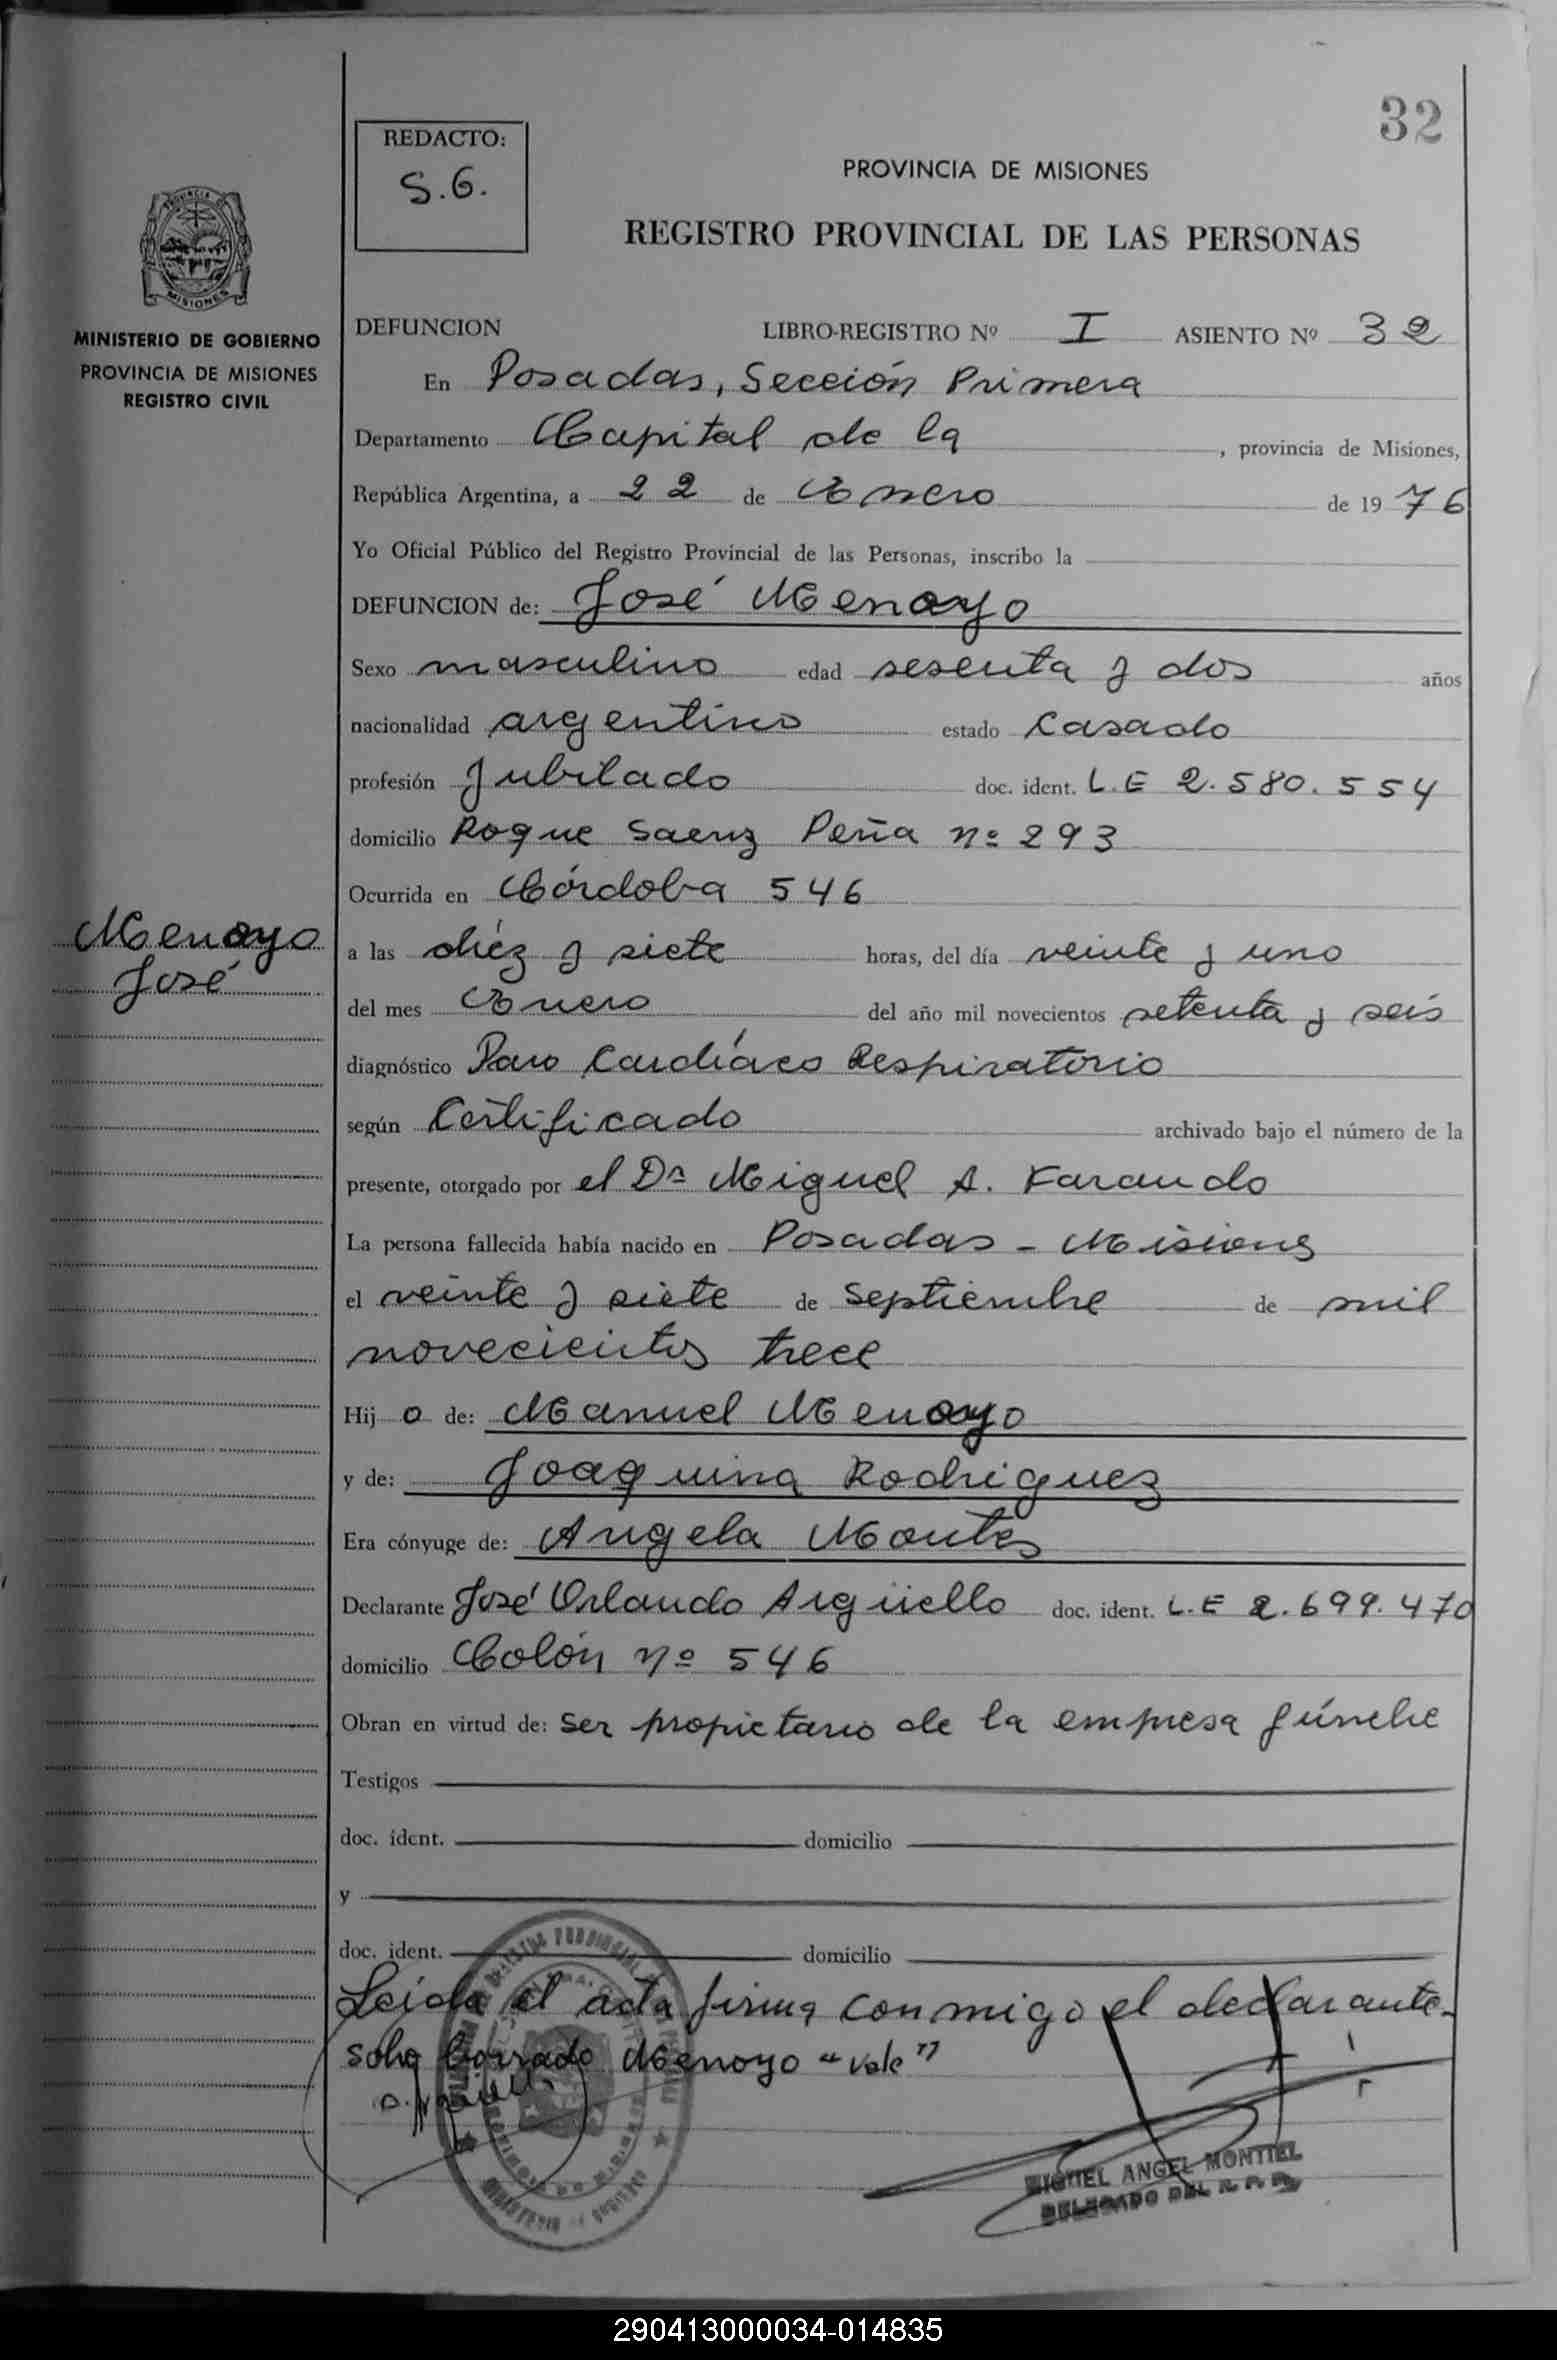 32
REDACTO:
S.G.
PROVINCIA DE MISIONES
REGISTRO PROVINCIAL DE LAS PERSONAS
MISIONES
MINISTERIO DE GOBIERNO
PROVINCIA DE MISIONES
REGISTRO CIVIL
DEFUNCION LIBRO-REGISTRO Nº I ASIENTO Nº 32
En Posadas, Sección Primera
Departamento Capital de la , provincia de Misiones,
República Argentina, a 22 de Enero de 1976
Yo Oficial Público del Registro Provincial de las Personas, inscribo la
DEFUNCION de: José Menoyo
Sexo masculino edad sesenta y dos años
nacionalidad argentino estado Casado
profesión Jubilado doc. ident. L.E 2.580.554
domicilio Roque Saenz Peña nº 293
Ocurrida en Córdoba 546
Menoyo
José
a las diéz y siete horas, del día veinte y uno
del mes Enero del año mil novecientos setenta y seis
diagnóstico Paro Cardíaco Respiratorio
según Certificado archivado bajo el número de la
presente, otorgado por el Dr Miguel A. Farando
La persona fallecida había nacido en Posadas - Misiones
el veinte y siete de Septiembre de mil
novecientos trece
Hijo de: Manuel Menoyo
y de: Joaquina Rodriguez
Era cónyuge de: Angela Montes
Declarante José Orlando Argüello doc. ident. L.E 2.699.470
domicilio Colón nº 546
Obran en virtud de: Ser propietario de la empresa fúnebre
Testigos
doc. ident. domicilio
y
doc. ident. domicilio
Leida el acta firma conmigo el declarante.
sobre borrado Menoyo "Vale"
MIGUEL ANGEL MONTIEL
DELEGADO DEL R. P. P.
290413000034-014835